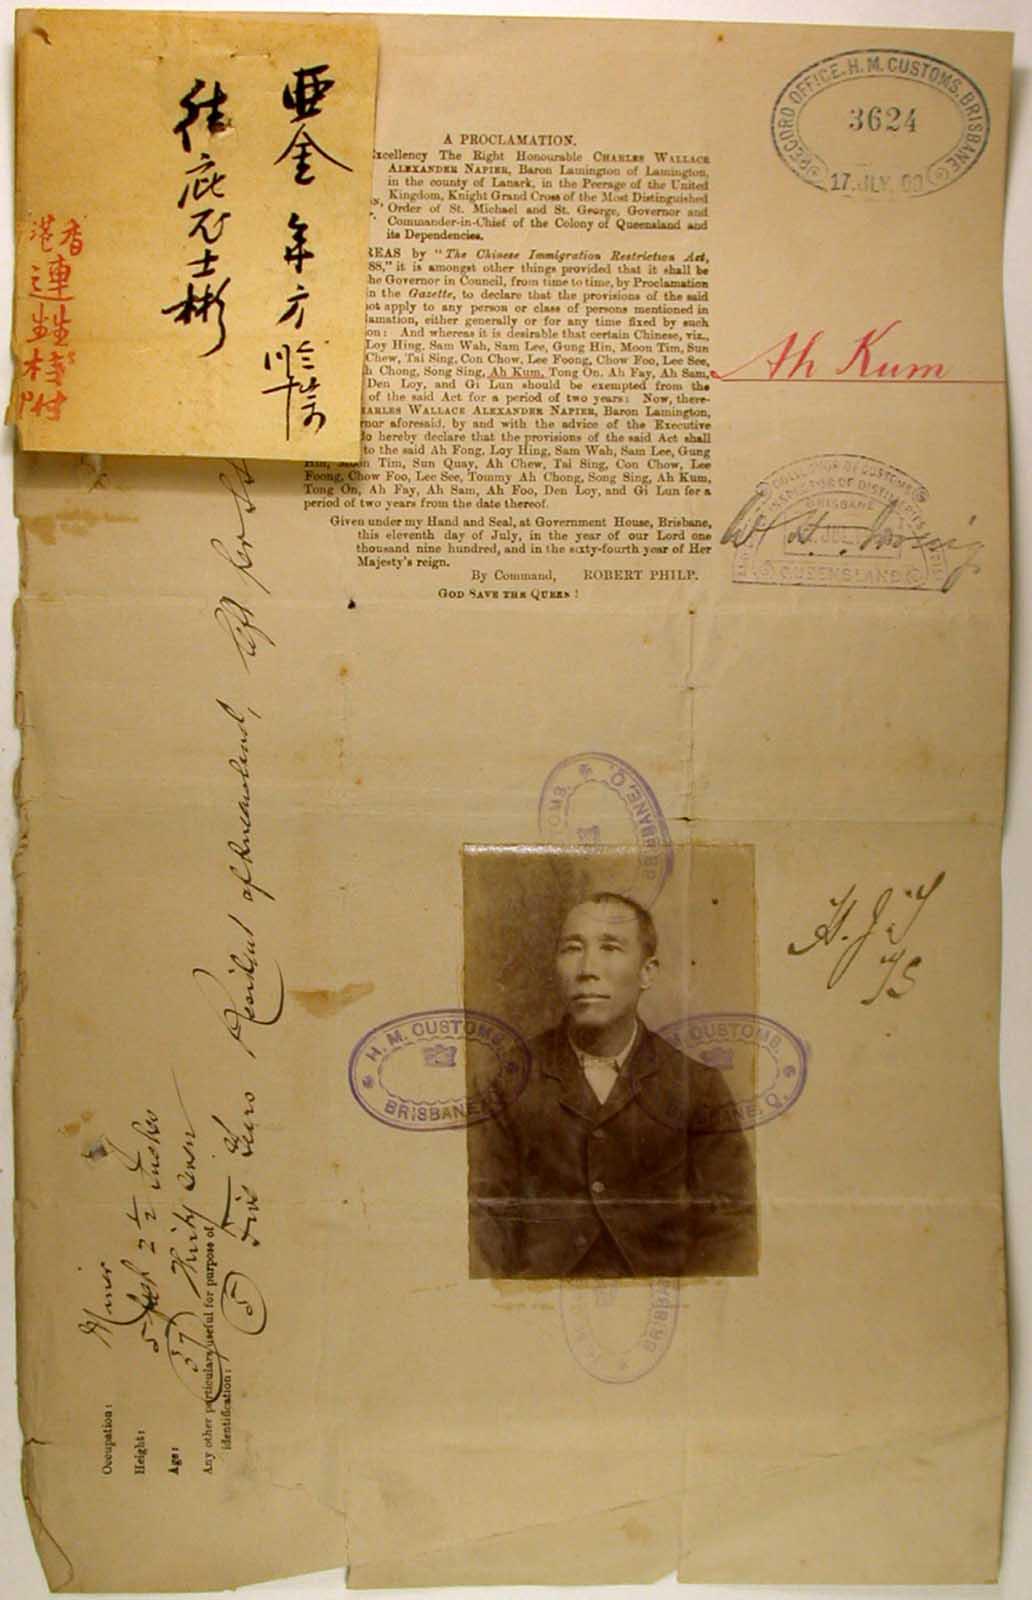 亜金 年方
往庇厘士彬
香港
連
棧
付
A PROCLAMATION.
Excellency The Right Honourable CHARLES WALLACE
ALEXANDER NAPIER, Baron Lamington of Lamington,
in the county of Lanark, in the Peerage of the United
Kingdom, Knight Grand Cross of the Most Distinguished
Order of St. Michael and St. George, Governor and
Commander-in-Chief of the Colony of Queensland and
its Dependencies.
REAS by "The Chinese Immigration Restriction Act,
88," it is amongst other things provided that it shall be
he Governor in Council, from time to time, by Proclamation
in the Gazette, to declare that the provisions of the said
not apply to any person or class of persons mentioned in
lamation, either generally or for any time fixed by such
on: And whereas it is desirable that certain Chinese, viz.,
Loy Hing, Sam Wah, Sam Lee, Gung Hin, Moon Tim, Sun
Chew, Tai Sing, Con Chow, Lee Foong, Chow Foo, Lee See,
h Chong, Song Sing, Ah Kum, Tong On, Ah Fay, Ah Sam,
Den Loy, and Gi Lun should be exempted from the
of the said Act for a period of two years: Now, there-
HARLES WALLACE ALEXANDER NAPIER, Baron Lamington,
rnor aforesaid, by and with the advice of the Executive
do hereby declare that the provisions of the said Act shall
to the said Ah Fong, Loy Hing, Sam Wah, Sam Lee, Gung
Hin, Moon Tim, Sun Quay, Ah Chew, Tai Sing, Con Chow, Lee
Foong, Chow Foo, Lee See, Tommy Ah Chong, Song Sing, Ah Kum,
Tong On, Ah Fay, Ah Sam, Ah Foo, Den Loy, and Gi Lun for a
period of two years from the date thereof.
Given under my Hand and Seal, at Government House, Brisbane,
this eleventh day of July, in the year of our Lord one
thousand nine hundred, and in the sixty-fourth year of Her
Majesty's reign.
By Command, ROBERT PHILP.
GOD SAVE THE QUEEN!
RECORD OFFICE. H. M. CUSTOMS, BRISBANE
3624
17. JLY. 00
Ah Kum
COLLECTOR OF CUSTOMS
INSPECTOR OF DISTILLERIES
BRISBANE
JUL
QUEENSLAND
H. M. CUSTOMS.
BRISBANE, Q.
H. M. CUSTOMS.
BRISBANE
CUSTOMS.
BRISBANE, Q.
BRISBA
Occupation: Miner
Height: 5 feet 2 1/2 Inches
Age: (37) Thirty seven
Any other particulars useful for purpose of
identification: (5) Five Years Resident of Queensland, left